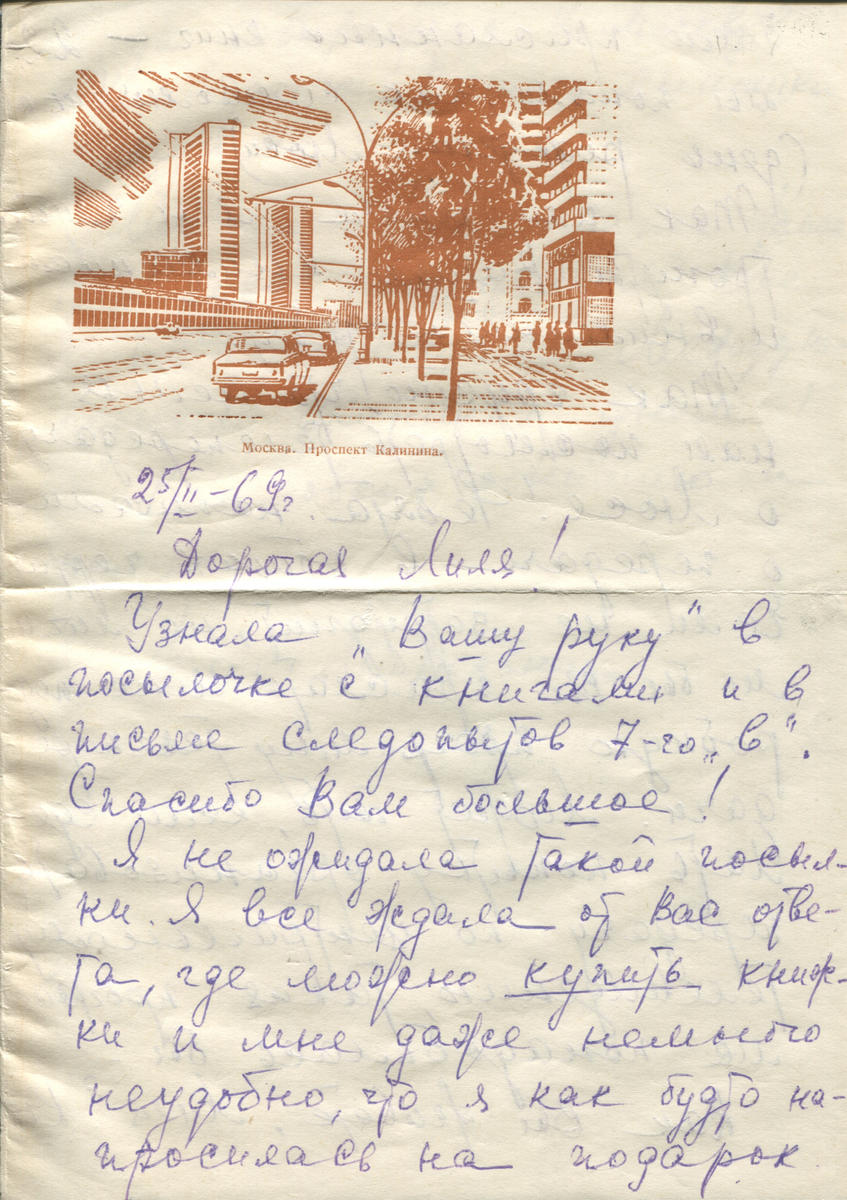 Москва. Проспект Калинина.
25/II-69г
Дорогая Лиля!
Узнала „Вашу руку" в
посылочке с книгами и в
письме следопытов 7-го „в".
Спасибо Вам большое!
Я не ожидала такой посыл-
ки. Я все ждала от Вас отве-
та, где можно купить книж-
ки и мне даже немного
неудобно, что я как будто на-
просилась на подарок.